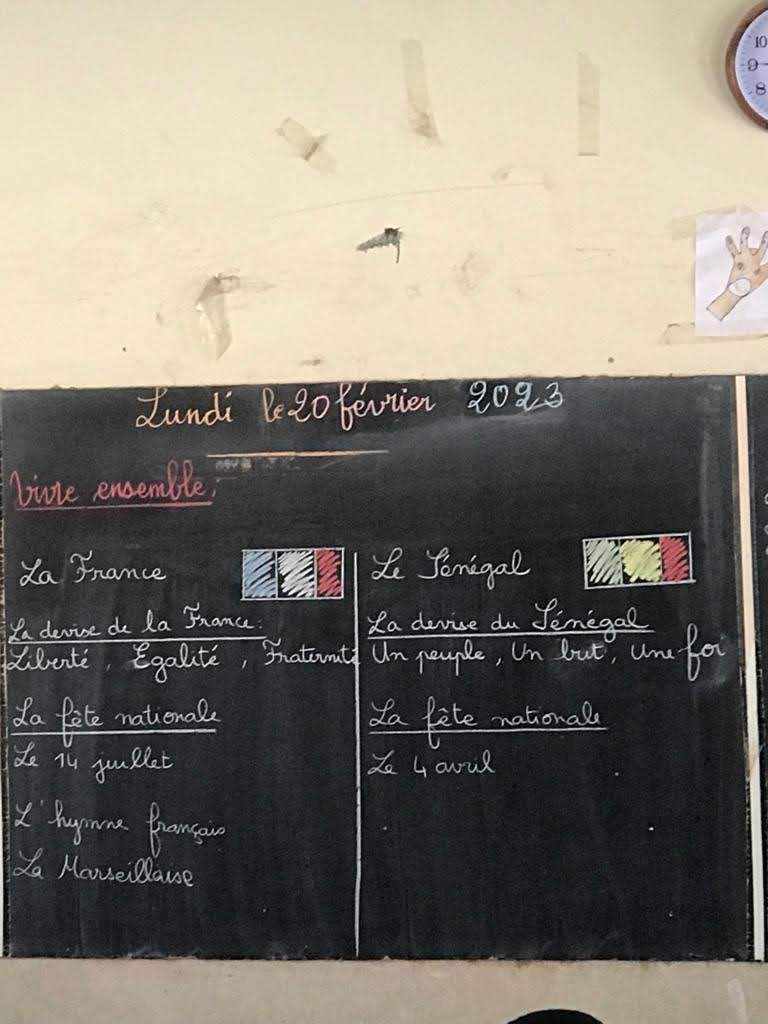 10
9
8
Lundi le 20 février 2023
Vivre ensemble.
La France
La devise de la France:
Liberté, Egalité, Fraternité
La fête nationale
Le 14 juillet
L'hymne français
La Marseillaise
Le Sénégal
La devise du Sénégal
Un peuple, Un but, Une foi
La fête nationale
Le 4 avril